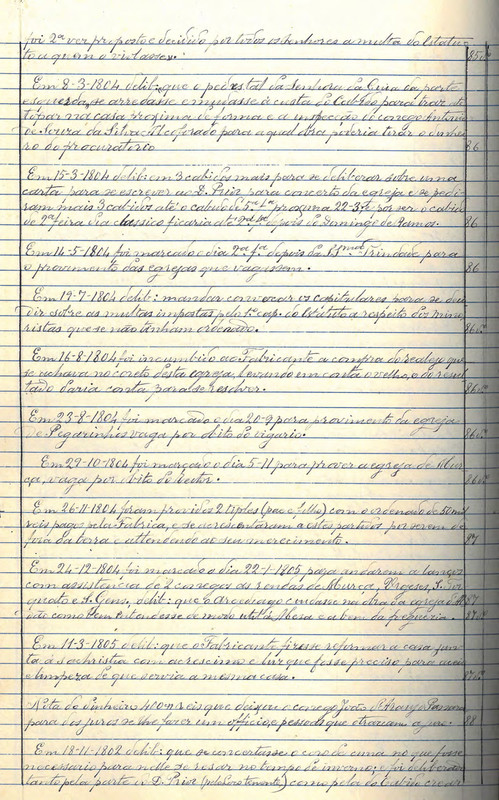 foi 2ª vez proposto e decidido por todos os senhores a multa do Estatu-
to a quem o violasse. 85vº
Em 8-3-1804 delib: que o pedestal da Senhora da Guia da parte
esquerda, se arredasse e mudasse á custa do Cabido para traz até
topar na casa proxima de forma e a inspeção do conego Antonio
de Souza da Silva Alcoforado para a qual obra poderia tirar o dinhei-
ro do procuratorio. 86
Em 15-3-1804 delib: em 3 cabidos mais para se deliberar sobre uma
carta para se escrever ao D. Prior para concerto da egreja e se pedi-
ram mais 3 cabidos até o cabido de 5ª fª proxima 22-3 e por ser o cabido
de 2ª feira via classico ficaria até 2ª fª depois de Domingo de Ramos. 86
Em 14-5-1804 foi marcado o dia 2ª fª depois da SSmª Trindade para
o provimento das egrejas que vagassem. 86
Em 19-7-1804 delib: mandar convocar os capitulares para se deci-
dir sobre as multas impostas pelo cap. do Estatuto a respeito dos mino-
ristas que se não tinham ordenado. 86vº
Em 16-8-1804 foi incumbido ao Fabricante a compra do realejo que
se achava no coreto desta egreja, levando em conta o velho, e do resul-
tado daria conta para se resolver. 86vº
Em 23-8-1804 foi marcado o dia 20-9 para provimento da egreja
de Pegarinhos vaga por obito do vigario. 86vº
Em 29-10-1804 foi marcado o dia 5-11 para prover a egreja de Mur-
ça, vaga por obito do reitor. 86vº
Em 26-11-1804 foram providos 2 tiples (pae e filho) com o ordenado de 50 mil
reis pagos pela Fabrica, e se acrescentaram a estes partidos, por serem de
fora da terra e attendendo ao seu merecimento. 87
Em 24-12-1804 foi marcado o dia 22-1-1805 para andarem a lanços
com assistencia de 2 conegos as rendas de Murça, S. Tor-
quato e S. Gens, delib: que o arcediago cuidasse na obra da egreja 87
como bem entendesse de modo util á Mesa e a bem da freguesia. 87vº
Em 11-3-1805 delib: que o Fabricante fizesse reformar a casa jun-
ta á sachristia com acrescimo e luz que fosse preciso para aceio
e limpeza de que servia a mesma casa. 87vº
Nota do dinheiro 400 reis que deixou o conego João
para dos juros se lhe fazer um officio 88
Em 18-11-1802 delib: que se concertasse o côro de cima no que fosse
necessario para nelle se resar no tempo de inverno; e foi deliberado
tanto pela parte do D. Prior como pela do Cabido crear